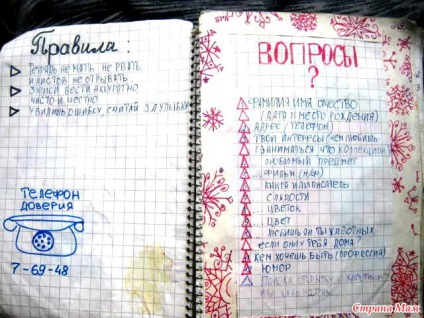 Правила:
Тетрадь не мять, не рвать
и листов не отрывать
Записи вести аккуратно
чисто и местно
Увидишь ошибку, считай за улыбку
ТЕЛЕФОН
ДОВЕРИЯ
7-69-48
ВОПРОСЫ
?
ФАМИЛИЯ ИМЯ ОЧЕСТВО
(ДАТА И МЕСТО РОЖДЕНИЯ)
АДРЕС (ТЕЛЕФОН)
ТВОИ ИНТЕРЕСЫ (ЧЕМ ЛЮБИШЬ
ЗАНИМАТЬСЯ, ЧТО
ЛЮБИМЫЙ ПРЕДМЕТ
...ФИЛЬМ (М/Ф)
КНИГА ИЛИ ПИСАТЕЛЬ
СЛАДОСТИ
...ЦВЕТОК
...ЦВЕТ
ЛЮБИШЬ ЛИ ТЫ ЖИВОТНЫХ
ЕСЛИ ОНИ У ТЕБЯ ДОМА?
КЕМ ХОЧЕШЬ БЫТЬ (ПРОФЕССИЯ)
ЮМОР
Страна Мам